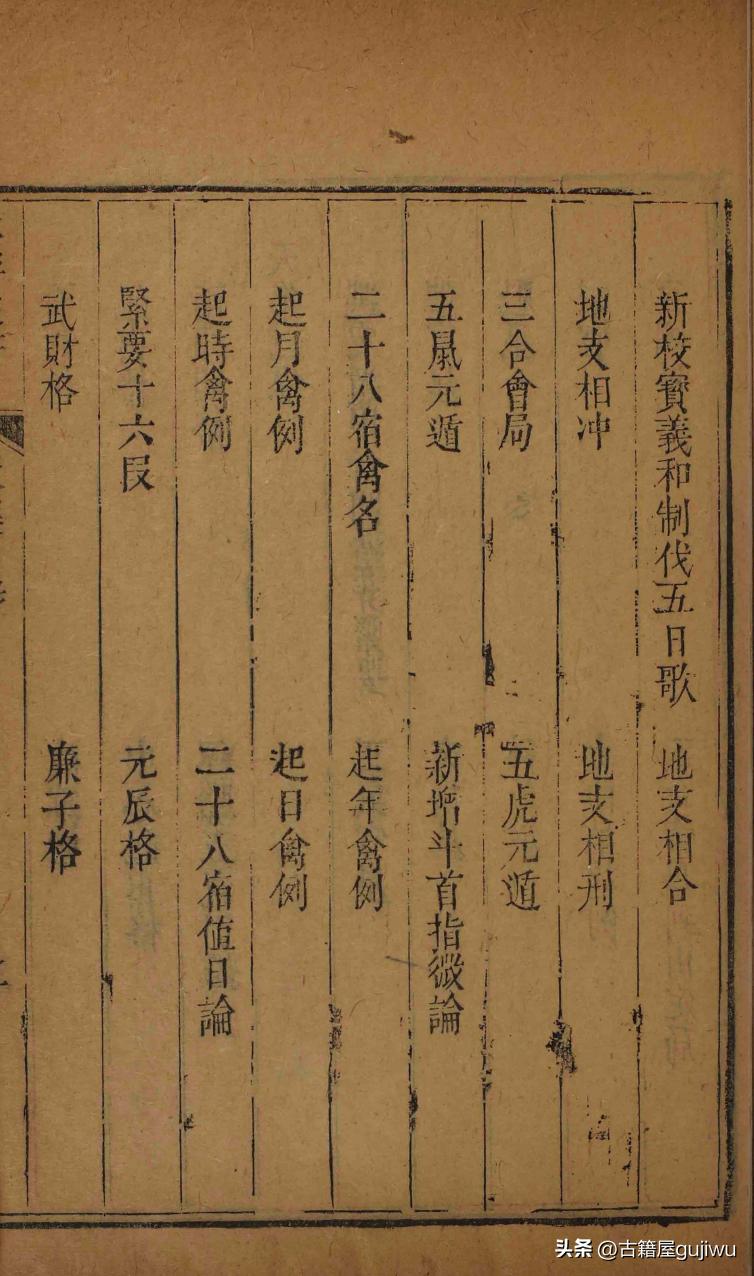 新校寳義和制伐五日歌　地支相合
地支相冲　地支相刑
三合會局　五虎元遁
五鼠元遁　新増斗首指微論
二十八宿禽名　起年禽例
起月禽例　起日禽例
起時禽例　二十八宿值日論
緊要十六段　元辰格
武財格　廉子格
头条 @古籍屋gujiwu